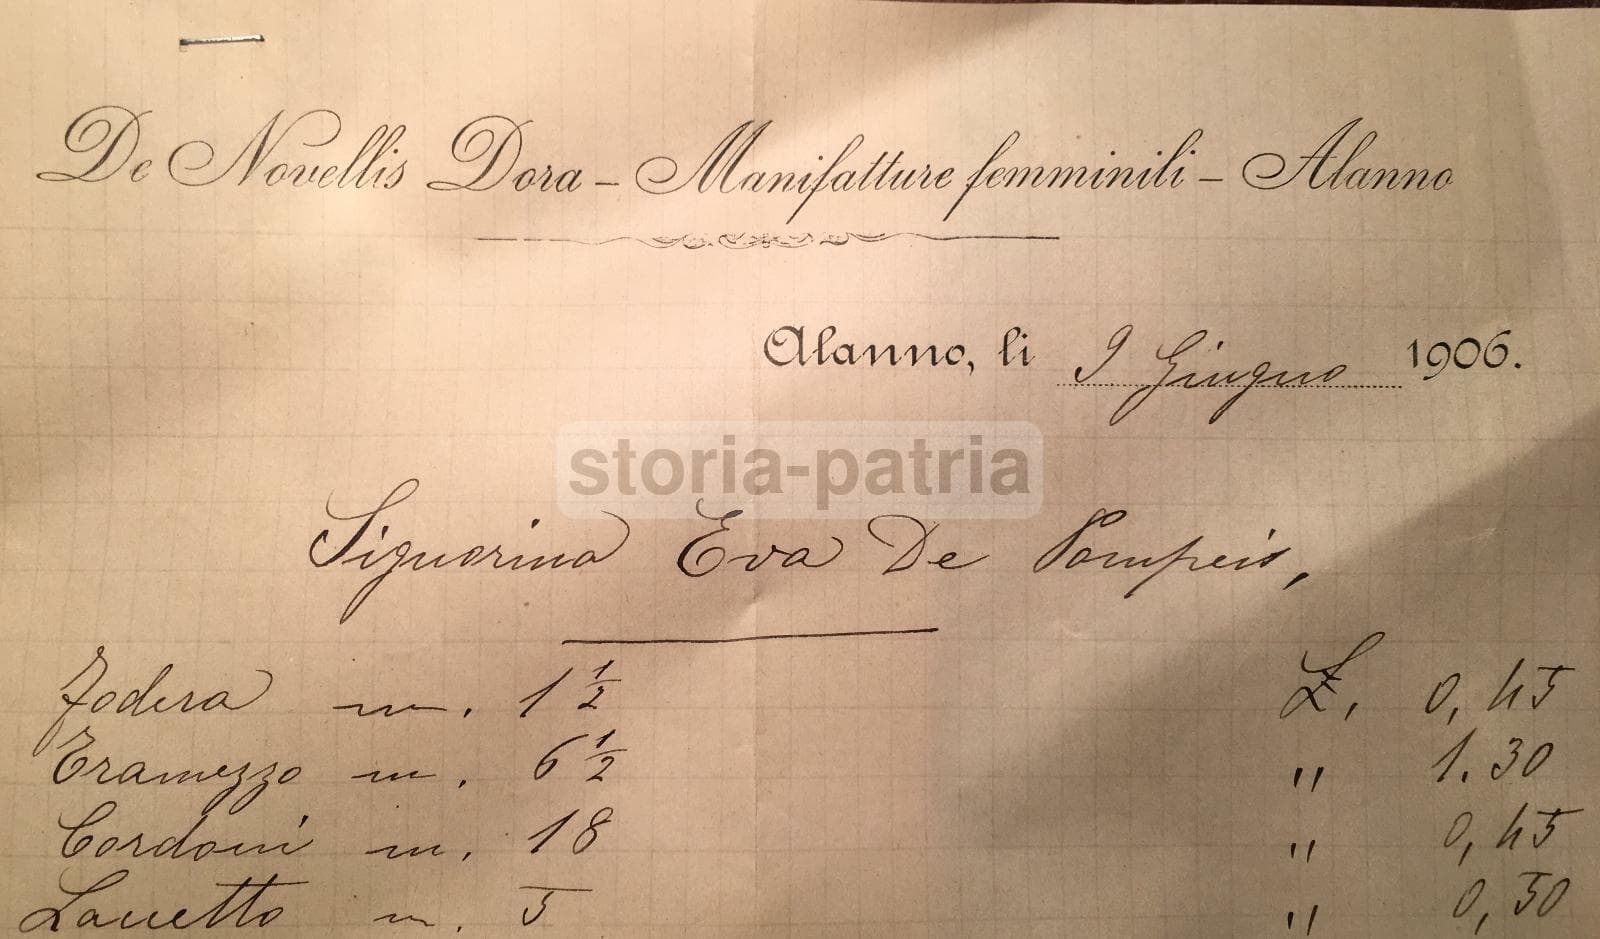 De Novellis Dora – Manifatture femminili – Alanno
Alanno, li 9 Giugno 1906.
storia-patria
Signorina Eva De Pompeis,
Fodera m. 1 1/2 £. 0,45
Tramezzo m. 6 1/2 " 1.30
Cordoni m. 18 " 0,45
m. 5 " 0,50